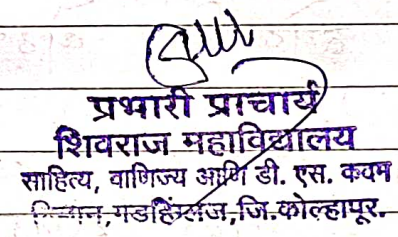 प्रभारी प्राचार्य
शिवराज महाविद्यालय
साहित्य, वाणिज्य आणि डी. एस. कदम
विज्ञान,गडहिंग्लज,जि.कोल्हापूर.